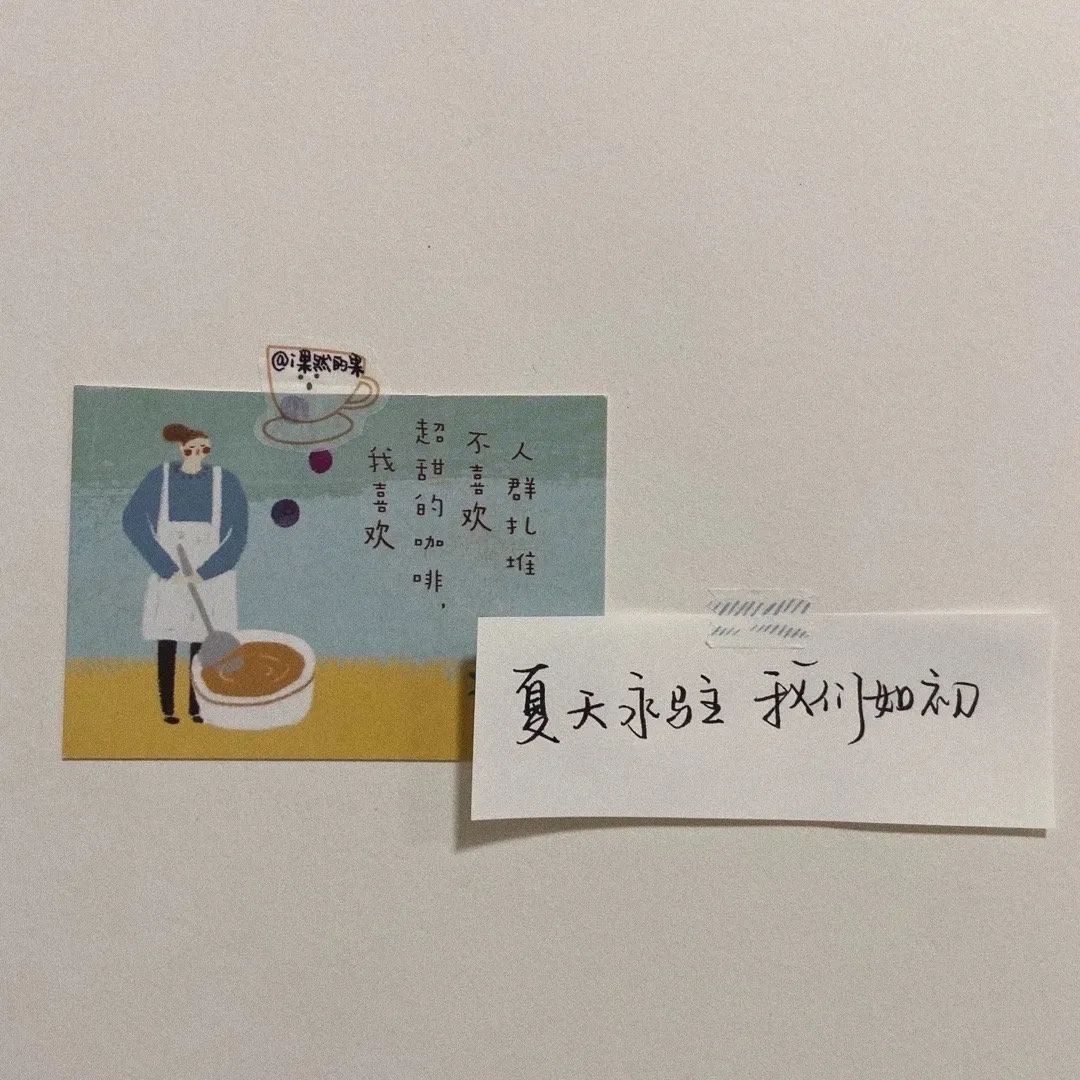 @i果然的果
我喜欢
超甜的咖啡，
不喜欢
人群扎堆
夏天永驻 我们如初